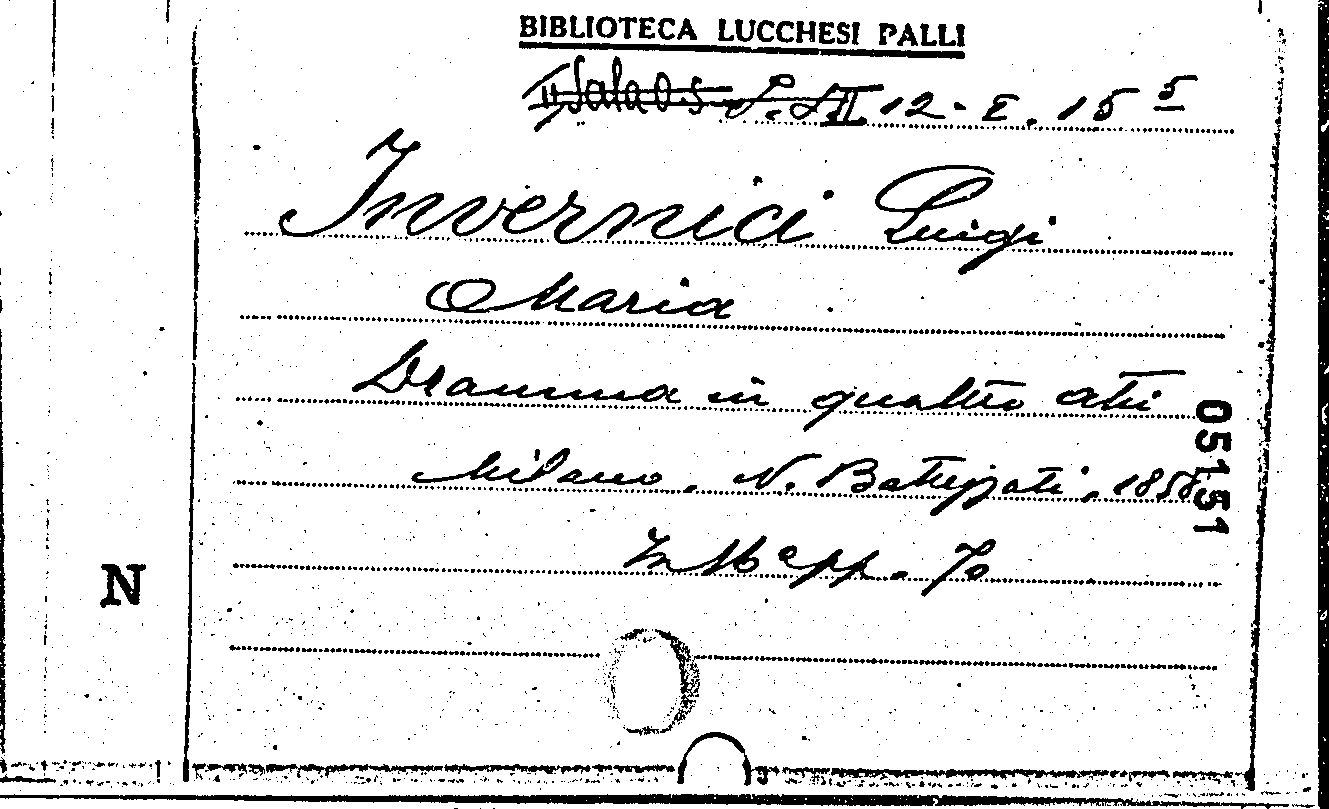 BIBLIOTECA LUCCHESI PALLI
II Sala O.5 S. S. II 12 - E. 15 5
Invernici Luigi
Maria
Dramma in quattro atti
Milano. N. Battezzati, 185
In 16° pp. 70
N
05151